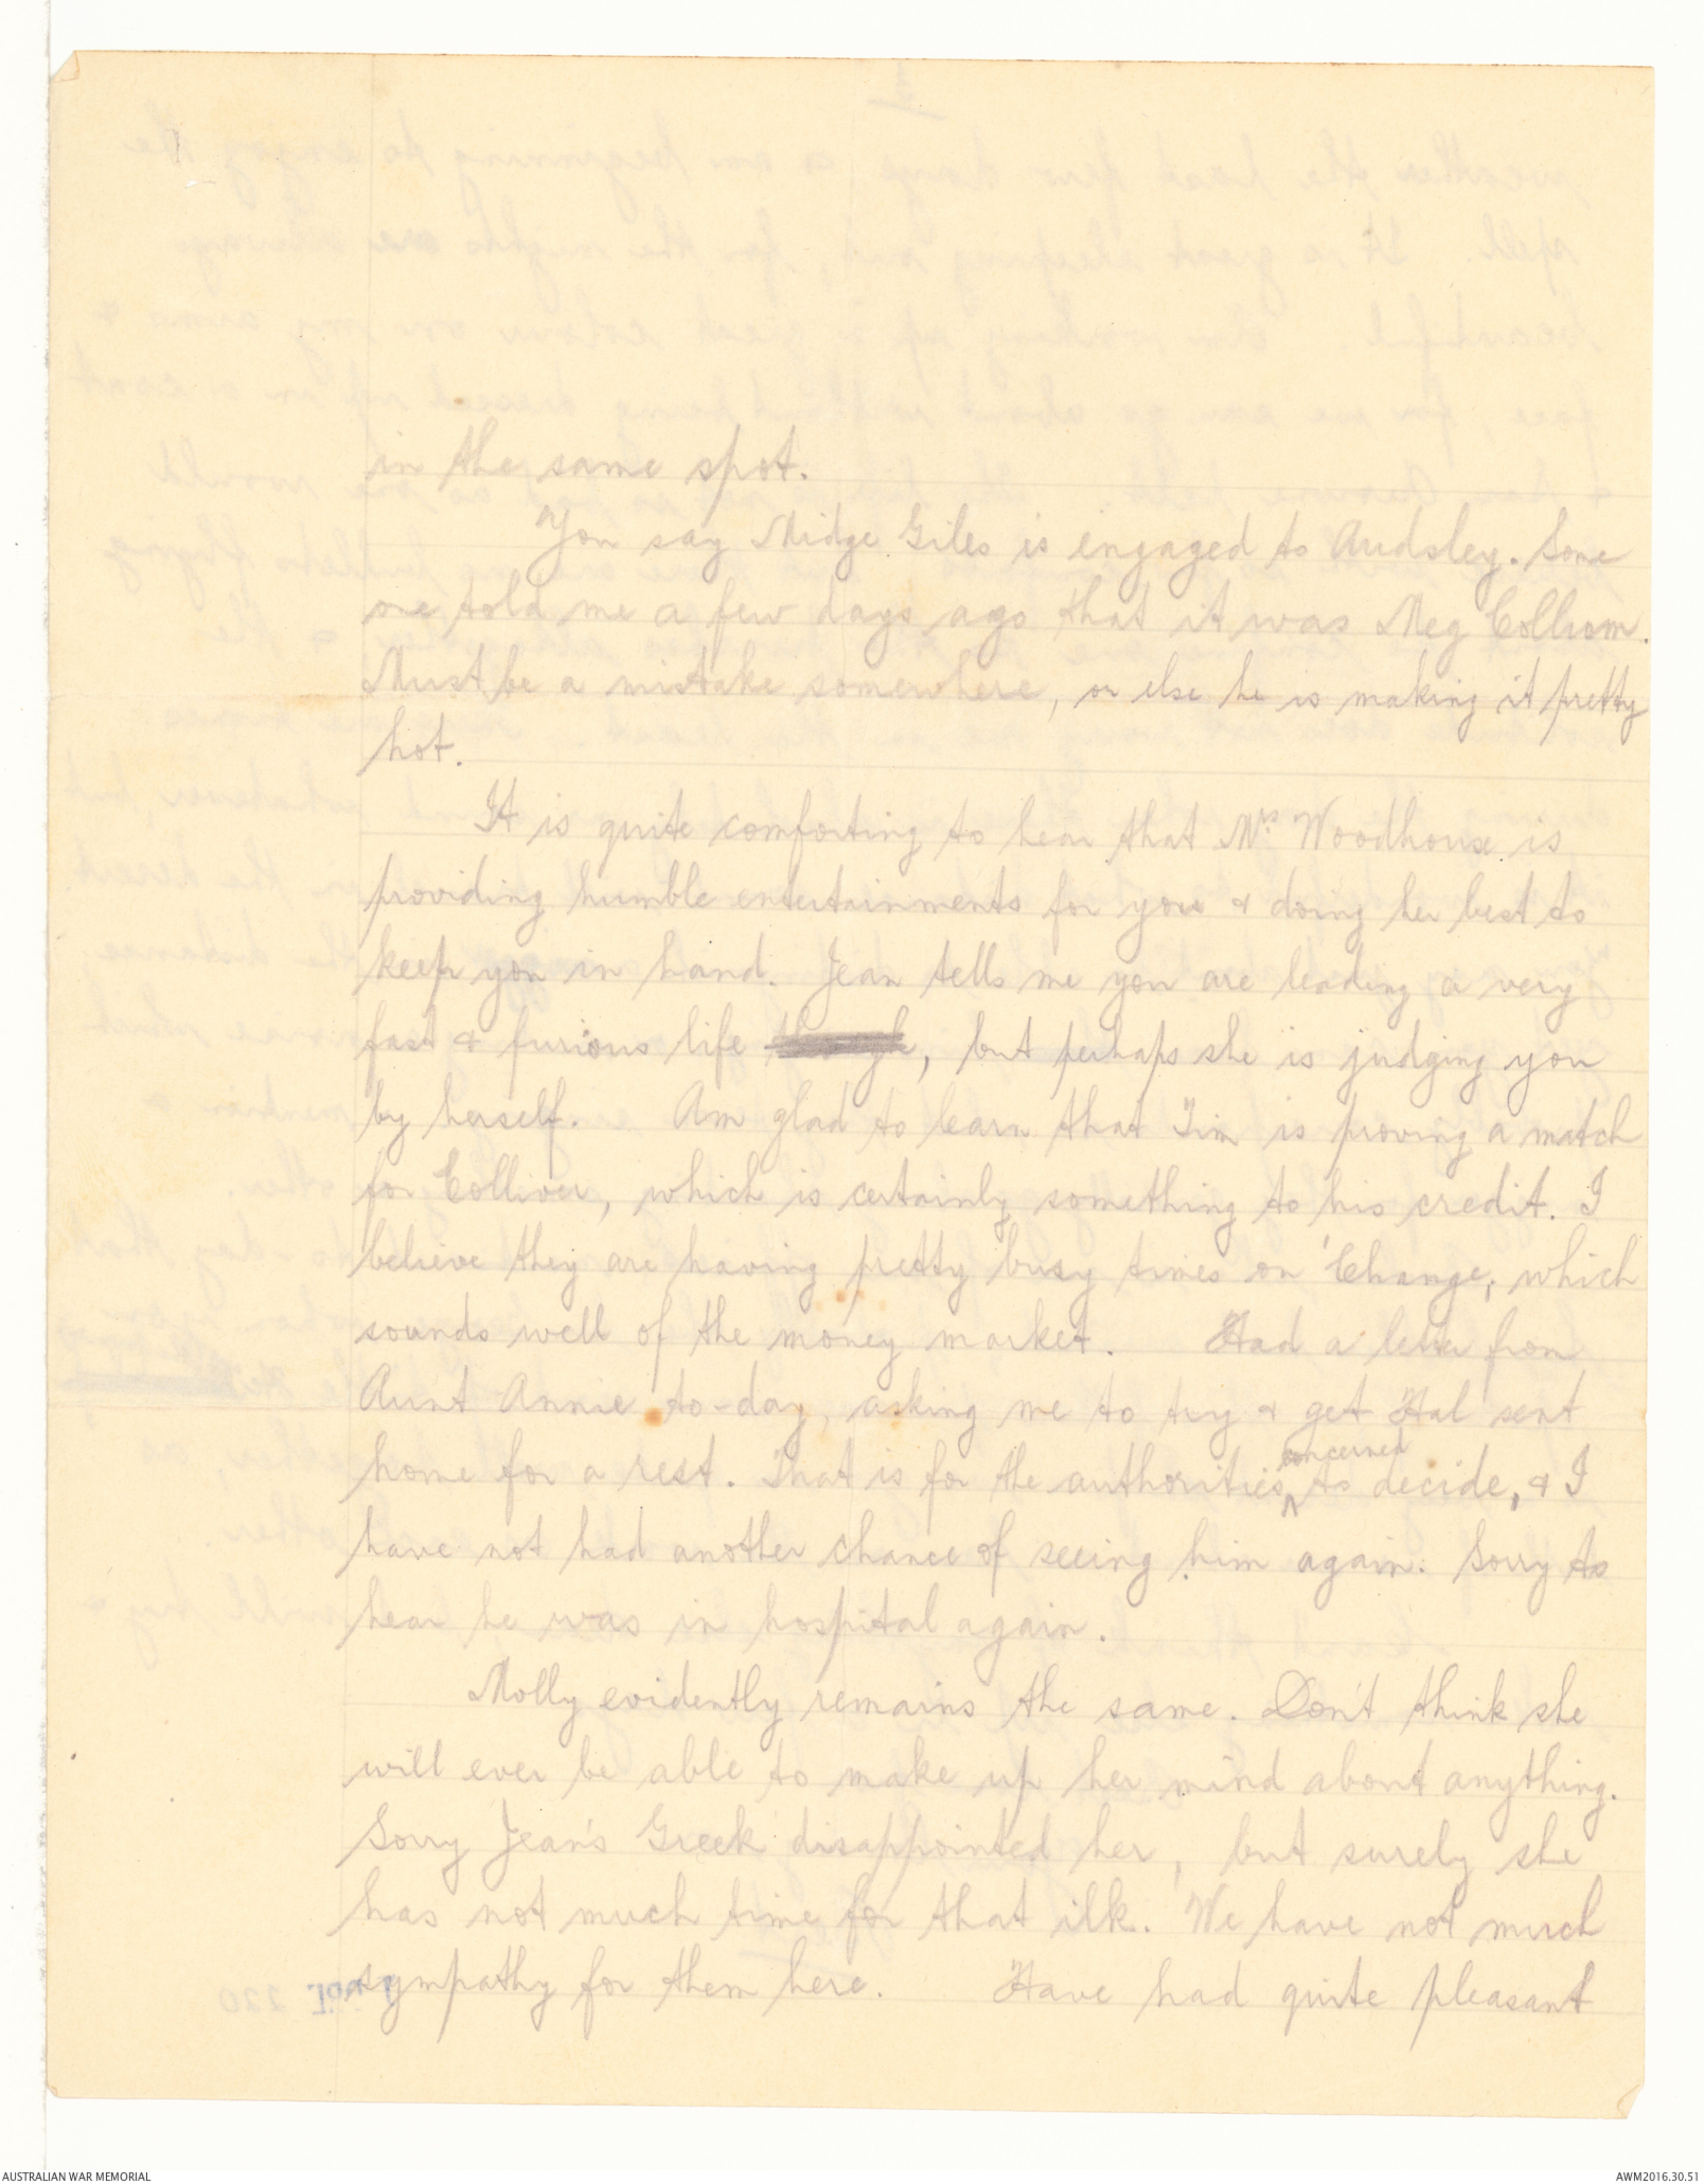 in the same spot.
You say Midge Giles is engaged to Audsley. Some
one told me a few days ago that it was Meg Collom.
Must be a mistake somewhere, or else he is making it pretty
hot.
It is quite comforting to hear that Mrs Woodhouse is
providing humble entertainments for you & doing her best to
keep you in hand. Jean tells me you are leading a very
fast & furious life though, but perhaps she is judging you
by herself. Am glad to learn that Tim is proving a match
for Colliver, which is certainly something to his credit. I
believe they are having pretty busy times on 'Change, which
sounds well of the money market. Had a letter from
Aunt Annie to-day, asking me to try & get Hal sent
home for a rest. That is for the authorities concerned to decide, & I
have not had another chance of seeing him again. Sorry to
hear he was in hospital again.
Molly evidently remains the same. Don't think she
will ever be able to make up her mind about anything.
Sorry Jean's Greek disappointed her, but surely she
has not much time for that ilk. We have not much
sympathy for them here. Have had quite pleasant
AUSTRALIAN WAR MEMORIAL
AWM2016.30.51